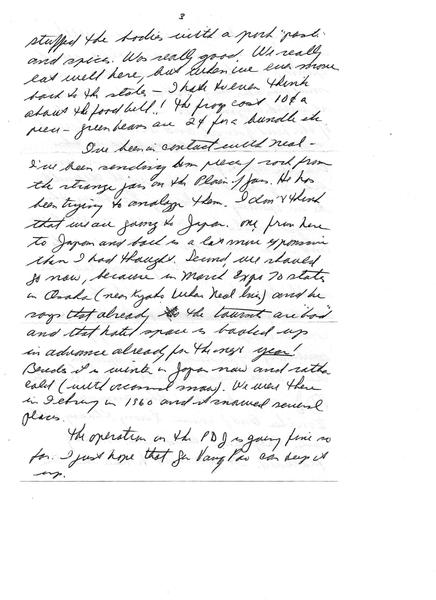 3
stuffed the bodies with a pork paste
and spices. Was really good. We really
eat well here, but when we ever move
back to the states - I hate to even think
about the food bill!! The frogs cost 10¢ a
piece - green beans are 2¢ for a bundle etc
I've been in contact with Neal -
I've been sending him pieces of rock from
the strange jars on the Plain of Jars. He has
been trying to analyze them. I don't think
that we are going to Japan. One from here
to Japan and back is a lot more expensive
than I had thought. Second we should
go now, because in March Expo 70 starts
in Osaka (near Kyoto where Neal lives) and he
says that already the tourist are "bad"
and that hotel space is booked up
in advance already for the next year!
Besides it is winter in Japan now and rather
cold (with occasional snow). We were there
in February in 1960 and it snowed several
places.
The operation on the PDJ is going fine so
far. I just hope that Gen Vang Pao can keep it
up.